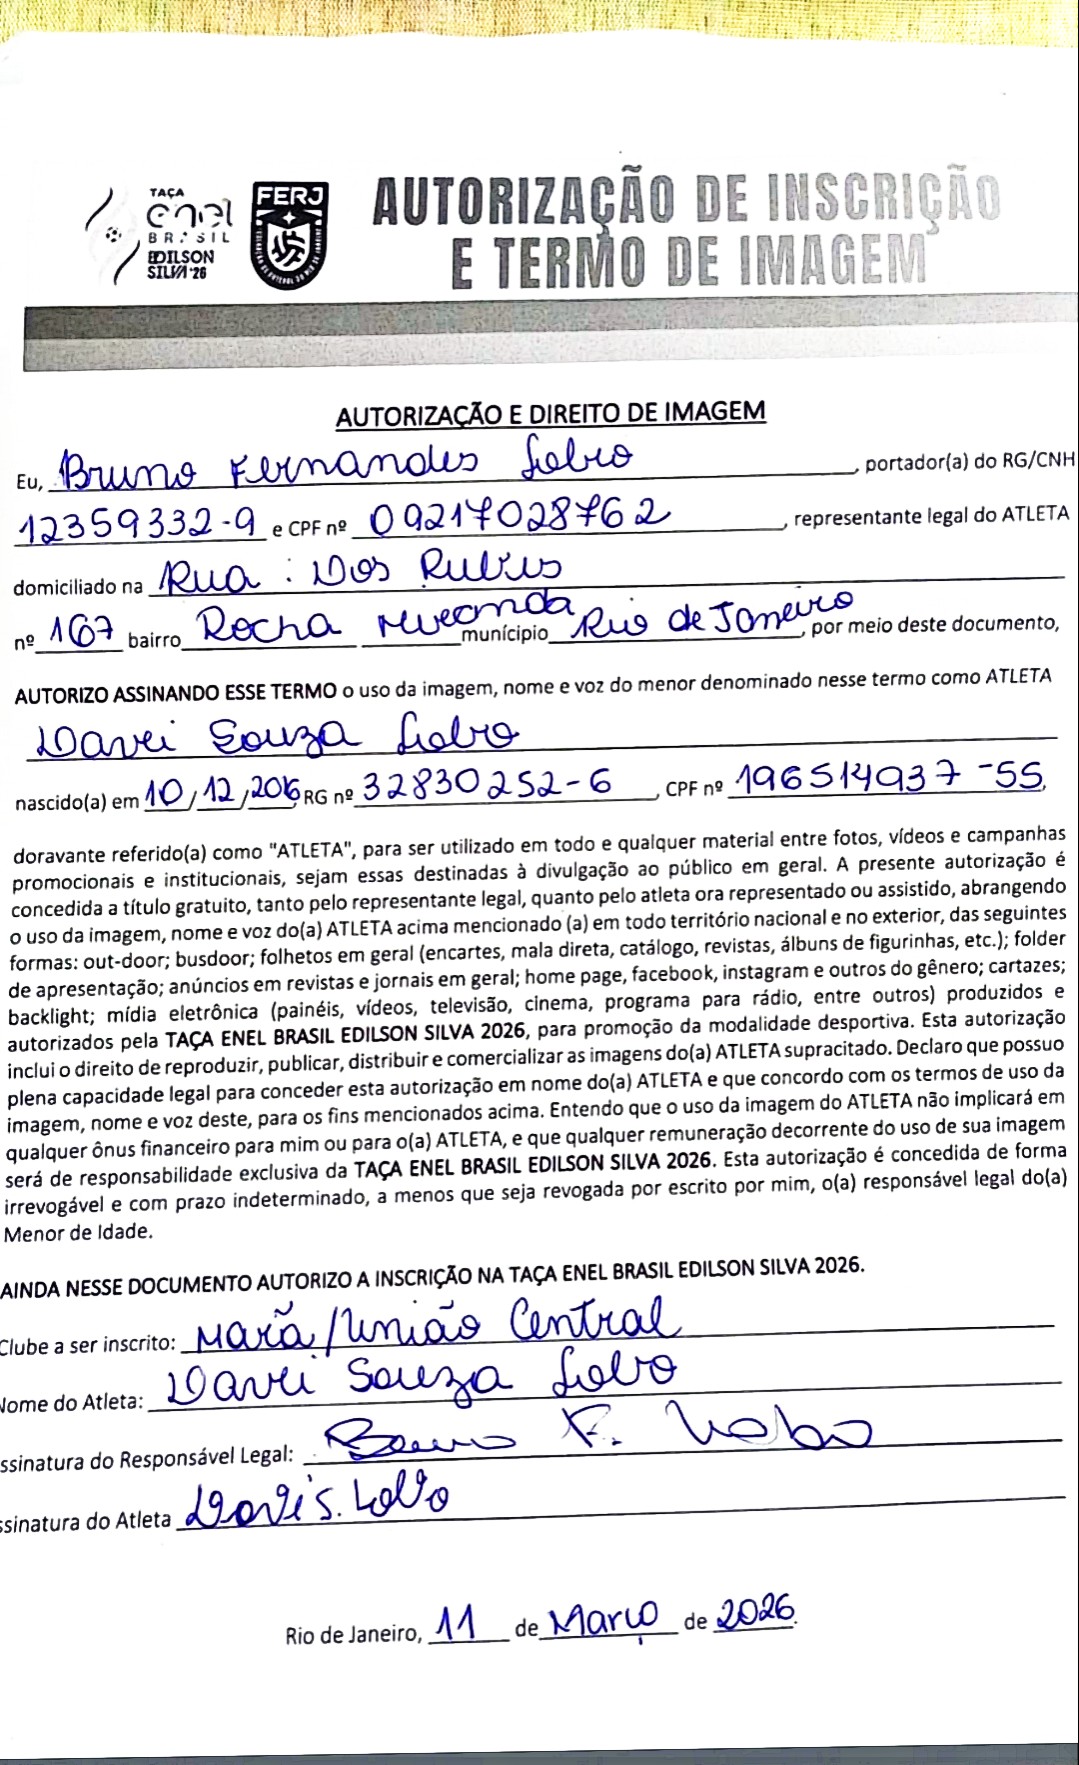 TAÇA
enel
BRASIL
EDILSON
SILVA '26
FERJ
AUTORIZAÇÃO DE INSCRIÇÃO
E TERMO DE IMAGEM
AUTORIZAÇÃO E DIREITO DE IMAGEM
Eu, Bruno Fernandes Lobo, portador(a) do RG/CNH
12359332-9 e CPF nº 09217028762, representante legal do ATLETA
domiciliado na Rua: Dos Rubis
nº 167 bairro Rocha Miranda munícipio Rio de Janeiro, por meio deste documento,
AUTORIZO ASSINANDO ESSE TERMO o uso da imagem, nome e voz do menor denominado nesse termo como ATLETA
Davi Souza Lobo
nascido(a) em 10/12/2016 RG nº 32830252-6, CPF nº 196514937-55,
doravante referido(a) como "ATLETA", para ser utilizado em todo e qualquer material entre fotos, vídeos e campanhas
promocionais e institucionais, sejam essas destinadas à divulgação ao público em geral. A presente autorização é
concedida a título gratuito, tanto pelo representante legal, quanto pelo atleta ora representado ou assistido, abrangendo
o uso da imagem, nome e voz do(a) ATLETA acima mencionado (a) em todo território nacional e no exterior, das seguintes
formas: out-door; busdoor; folhetos em geral (encartes, mala direta, catálogo, revistas, álbuns de figurinhas, etc.); folder
de apresentação; anúncios em revistas e jornais em geral; home page, facebook, instagram e outros do gênero; cartazes;
backlight; mídia eletrônica (painéis, vídeos, televisão, cinema, programa para rádio, entre outros) produzidos e
autorizados pela TAÇA ENEL BRASIL EDILSON SILVA 2026, para promoção da modalidade desportiva. Esta autorização
inclui o direito de reproduzir, publicar, distribuir e comercializar as imagens do(a) ATLETA supracitado. Declaro que possuo
plena capacidade legal para conceder esta autorização em nome do(a) ATLETA e que concordo com os termos de uso da
imagem, nome e voz deste, para os fins mencionados acima. Entendo que o uso da imagem do ATLETA não implicará em
qualquer ônus financeiro para mim ou para o(a) ATLETA, e que qualquer remuneração decorrente do uso de sua imagem
será de responsabilidade exclusiva da TAÇA ENEL BRASIL EDILSON SILVA 2026. Esta autorização é concedida de forma
irrevogável e com prazo indeterminado, a menos que seja revogada por escrito por mim, o(a) responsável legal do(a)
Menor de Idade.
AINDA NESSE DOCUMENTO AUTORIZO A INSCRIÇÃO NA TAÇA ENEL BRASIL EDILSON SILVA 2026.
Clube a ser inscrito: Marã/União Central
Nome do Atleta: Davi Souza Lobo
ssinatura do Responsável Legal: Bruno F. Lobo
ssinatura do Atleta Davi S. Lobo
Rio de Janeiro, 11 de Março de 2026.